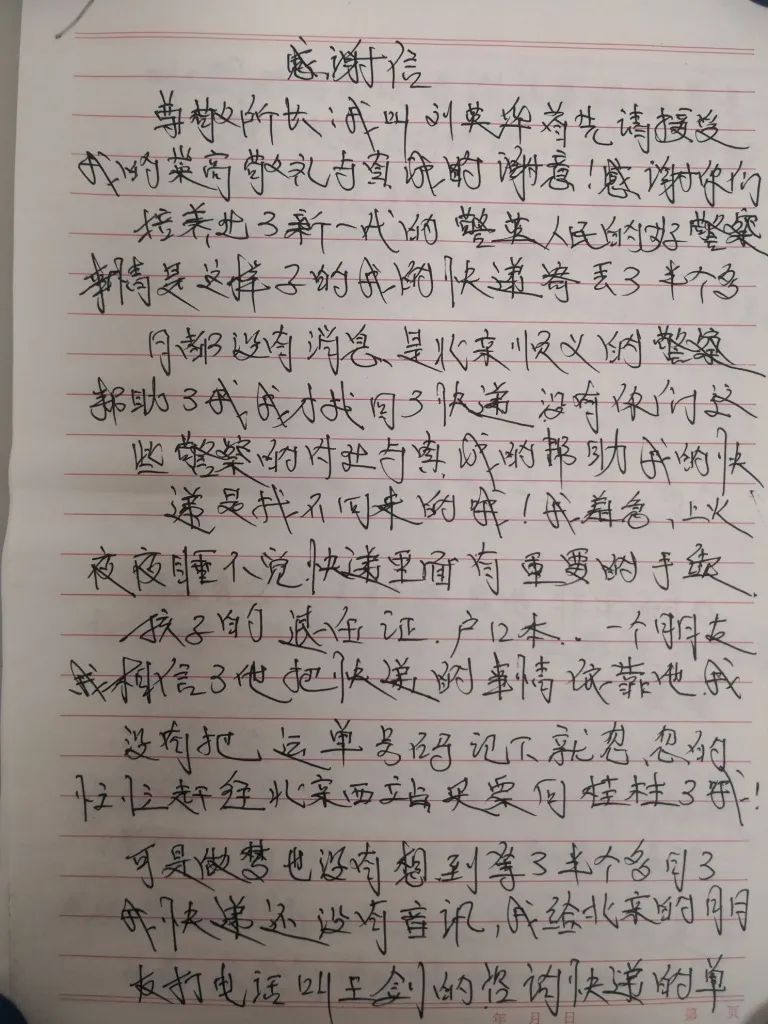 感谢信
尊敬所长:我叫刘英华首先请接受
我的崇高敬礼与真诚的谢意!感谢你们
培养出了新一代的警英人民的好警察
事情是这样子的我的快递寄丢了半个多
月都没有消息、是北京顺义的警察
帮助了我我才找回了快递没有你们这
些警察的付出与真诚的帮助我的快
递是找不回来的哦!我着急、上火
夜夜睡不觉快递里面有重要的手续.
孩子的退伍证.户口本..一个朋友
我相信了他把快递的事情依靠他我
没有把运单号码记下就忽忽的
忙忙赶往北京西站买票回桂林了哦!
可是做梦也没有想到等了半个多月了
我快递还没有音讯,我给北京的朋
友打电话叫王剑的咨询快递的单
年 月 日
第 页